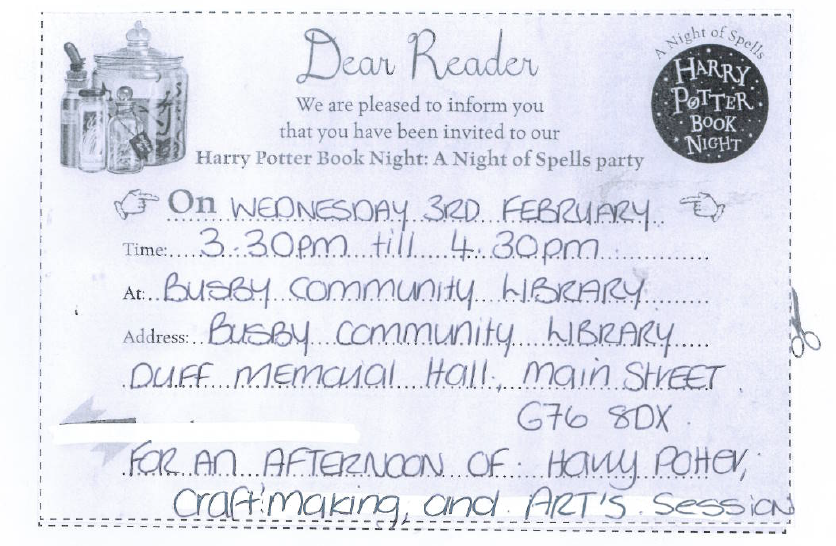 Dear Reader
We are pleased to inform you
that you have been invited to our
Harry Potter Book Night: A Night of Spells party
A Night of Spells
HARRY
POTTER
BOOK
NIGHT
On WEDNESDAY 3RD FEBRUARY
Time: 3.30pm till 4.30pm
At: BUSBY COMMUNITY LIBRARY
Address: BUSBY COMMUNITY LIBRARY
DUFF MEMORIAL HALL, MAIN STREET
G76 8DX
FOR AN AFTERNOON OF: Harry Potter,
craft making, and ART'S SESSION